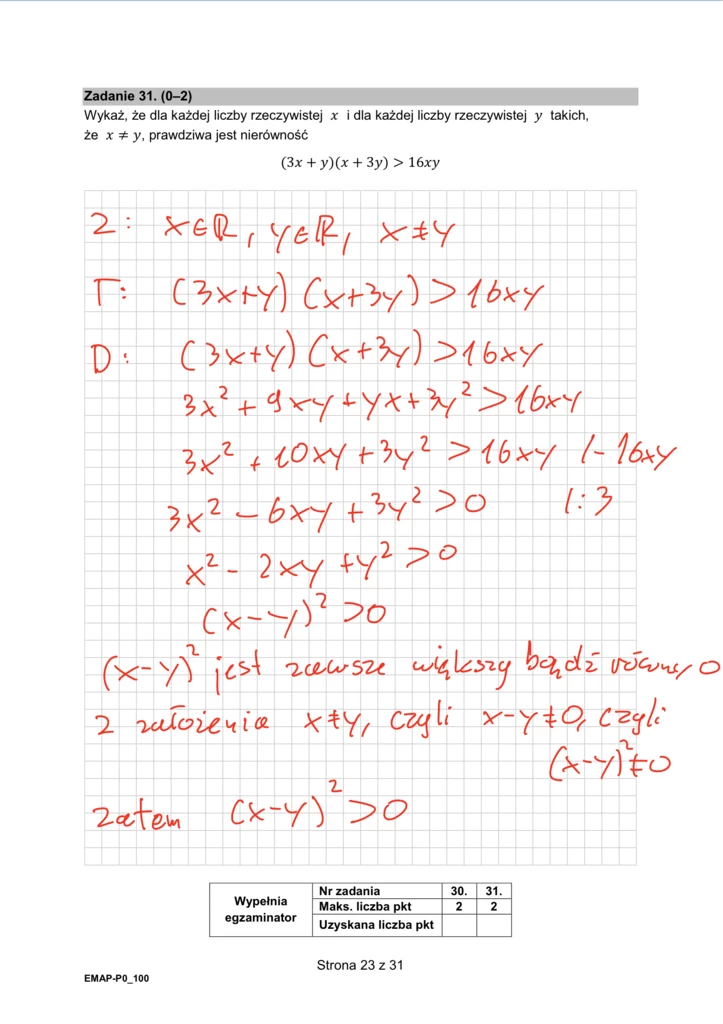 Zadanie 31. (0–2)
Wykaż, że dla każdej liczby rzeczywistej x i dla każdej liczby rzeczywistej y takich,
że x ≠ y, prawdziwa jest nierówność
(3x + y)(x + 3y) > 16xy
Z: x∈ℝ, y∈ℝ, x≠y
T: (3x+y)(x+3y)>16xy
D: (3x+y)(x+3y)>16xy
3x²+9xy+yx+3y²>16xy
3x²+10xy+3y²>16xy /-16xy
3x²-6xy+3y²>0 /:3
x²-2xy+y²>0
(x-y)²>0
(x-y)² jest zawsze większy bądź równy 0
Z założenia x≠y, czyli x-y≠0, czyli
(x-y)²≠0
zatem (x-y)²>0
Wypełnia egzaminator
Nr zadania 30. 31.
Maks. liczba pkt 2 2
Uzyskana liczba pkt
Strona 23 z 31
EMAP-P0_100